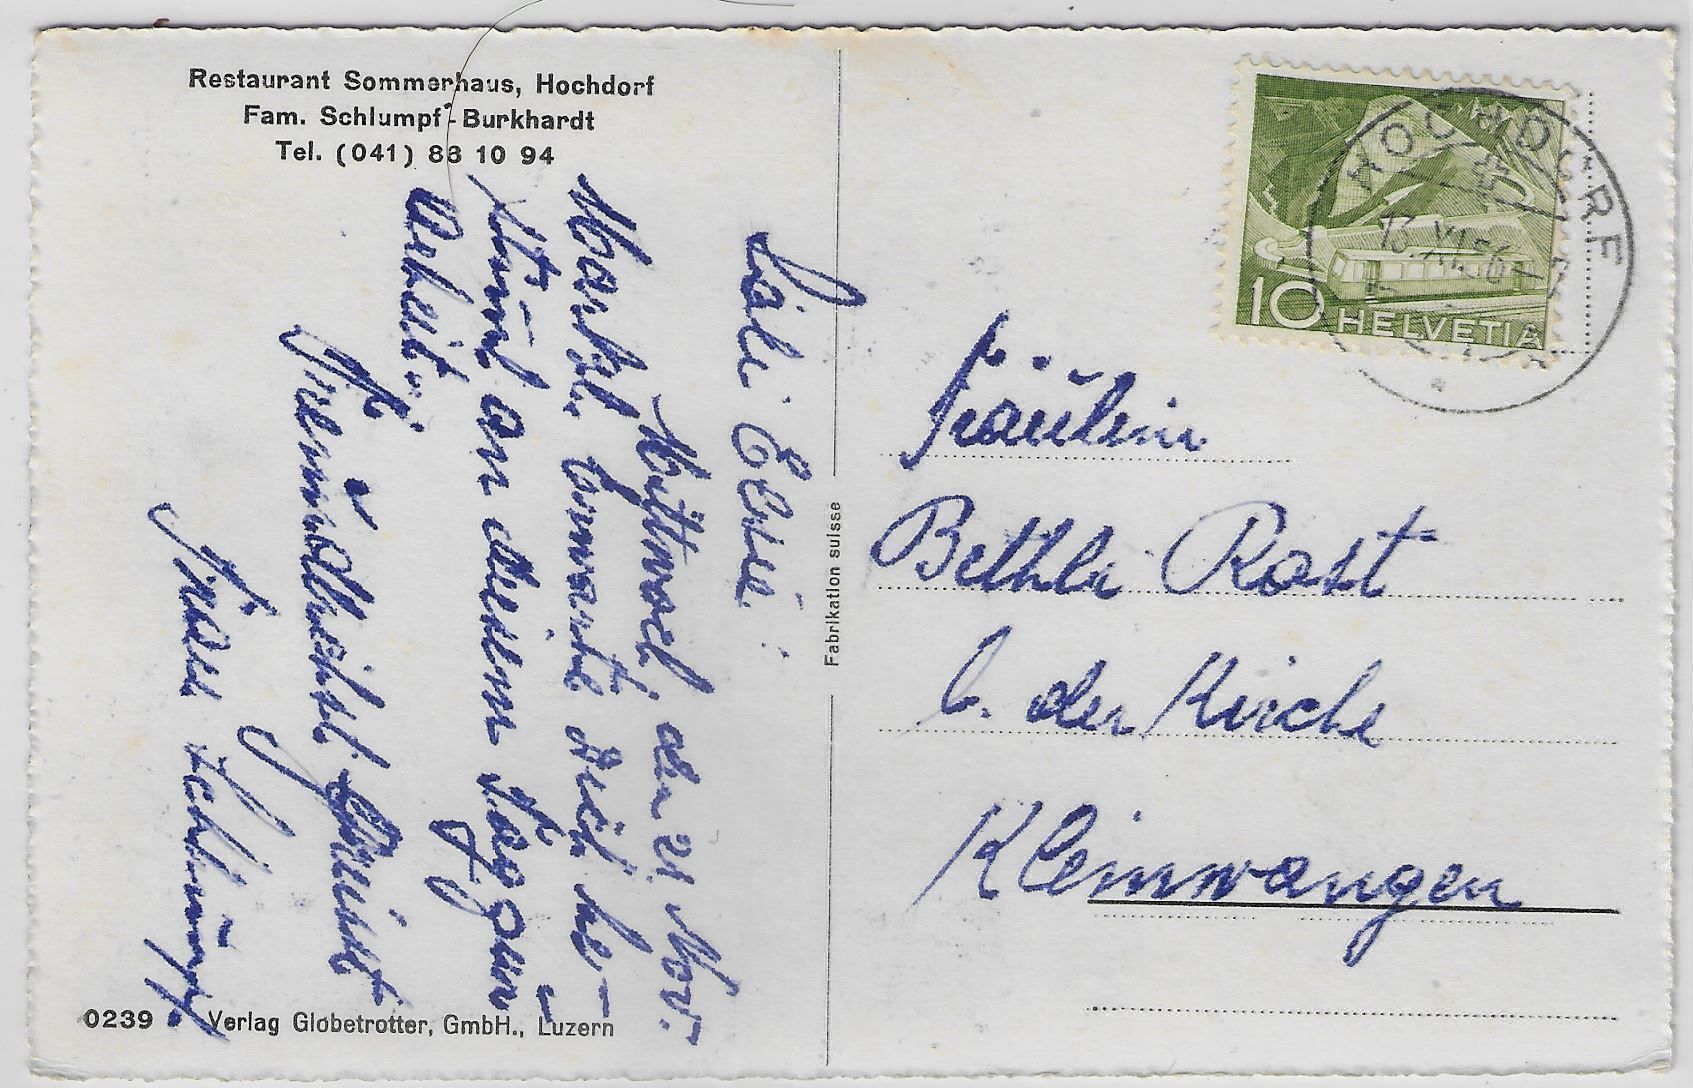 Restaurant Sommerhaus, Hochdorf
Fam. Schlumpf-Burkhardt
Tel. (041) 88 10 94
Mittwoch, den 21 Nov.
Markt. Erwarte dich be-
an deinem
Arbeit.
Freundlichst grüsst
Frau Schlumpf.
0239
Verlag Globetrotter, GmbH., Luzern
Fabrikation suisse
HOCHDORF
10 HELVETIA
Fräulein
Bethli Rast
b. der Kirche
Kleinwangen